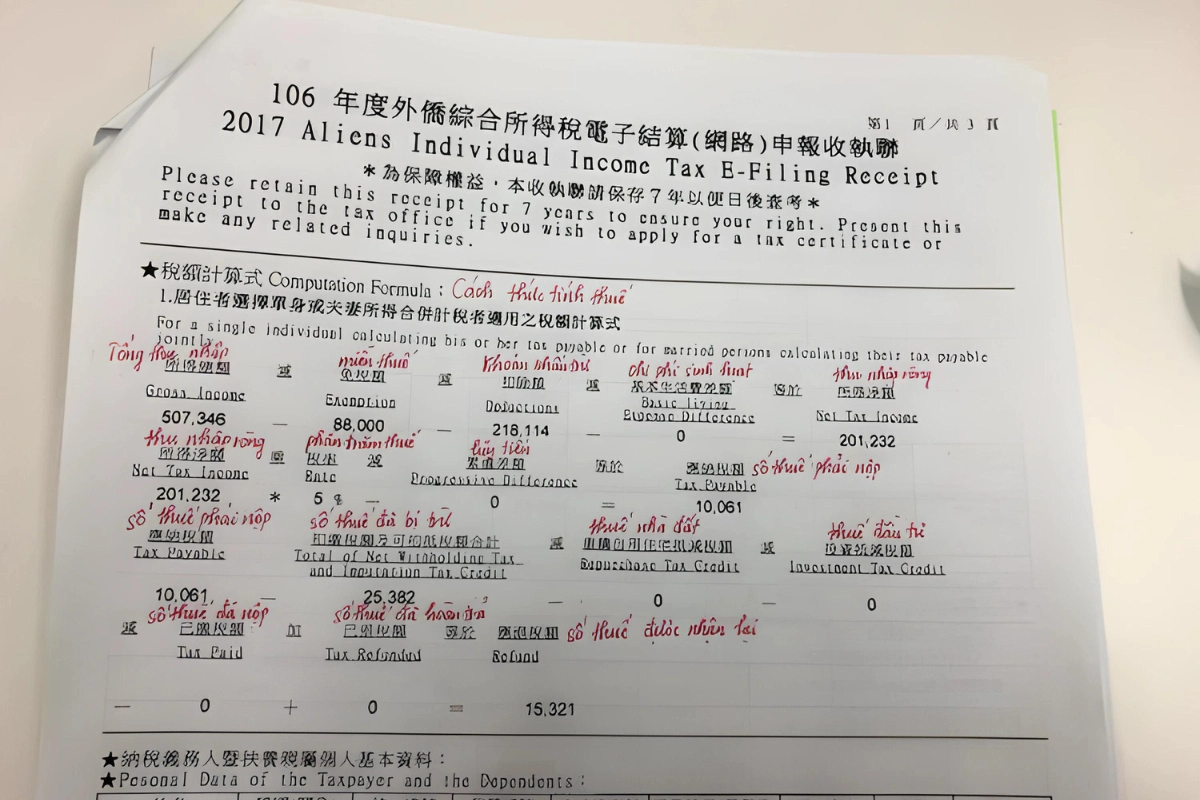 106 年度外僑綜合所得稅電子結算(網路)申報收執聯
第1 頁／共 3 頁
2017 Aliens Individual Income Tax E-Filing Receipt
*為保障權益，本收執聯請保存7年以便日後查考*
Please retain this receipt for 7 years to ensure your right. Present this
receipt to the tax office if you wish to apply for a tax certificate or
make any related inquiries.
★稅額計算式 Computation Formula： Cách thức tính thuế
1.居住者選擇單身或夫妻所得合併計稅者適用之稅額計算式
For a single individual calculating his or her tax payable or for married persons calculating their tax payable
jointly
Tổng thu nhập miễn thuế khoản khấu trừ chi phí sinh hoạt thu nhập ròng
所得總額 減 免稅額 減 扣除額 減 基本生活費差額 等於 所得淨額
Gross Income Exemption Deductions Basic Living Net Tax Income
Expense Difference
507,346 — 88,000 — 218,114 — 0 = 201,232
thu nhập ròng phần trăm thuế lũy tiến
所得淨額 稅率 減 累進差額 等於 應納稅額 số thuế phải nộp
Net Tax Income Rate Progressive Difference Tax Payable
201,232 * 5 % — 0 = 10,061
số thuế phải nộp số thuế đã bị trừ thuế nhà đất thuế đầu tư
應納稅額 扣繳稅額及可扣抵稅額合計 減 重購自用住宅扣抵稅額 減 投資抵減稅額
Tax Payable Total of Net Withholding Tax Repurchase Tax Credit Investment Tax Credit
and Imputation Tax Credit
10,061 — 25,382 — 0 — 0
số thuế đã nộp số thuế đã hoàn trả
減 已繳稅額 加 已退稅額 等於 應退稅額 số thuế được nhận lại
Tax Paid Tax Refunded Refund
— 0 + 0 = 15,321
★納稅義務人暨扶養親屬個人基本資料：
★Pesonal Data of the Taxpayer and the Dependents：